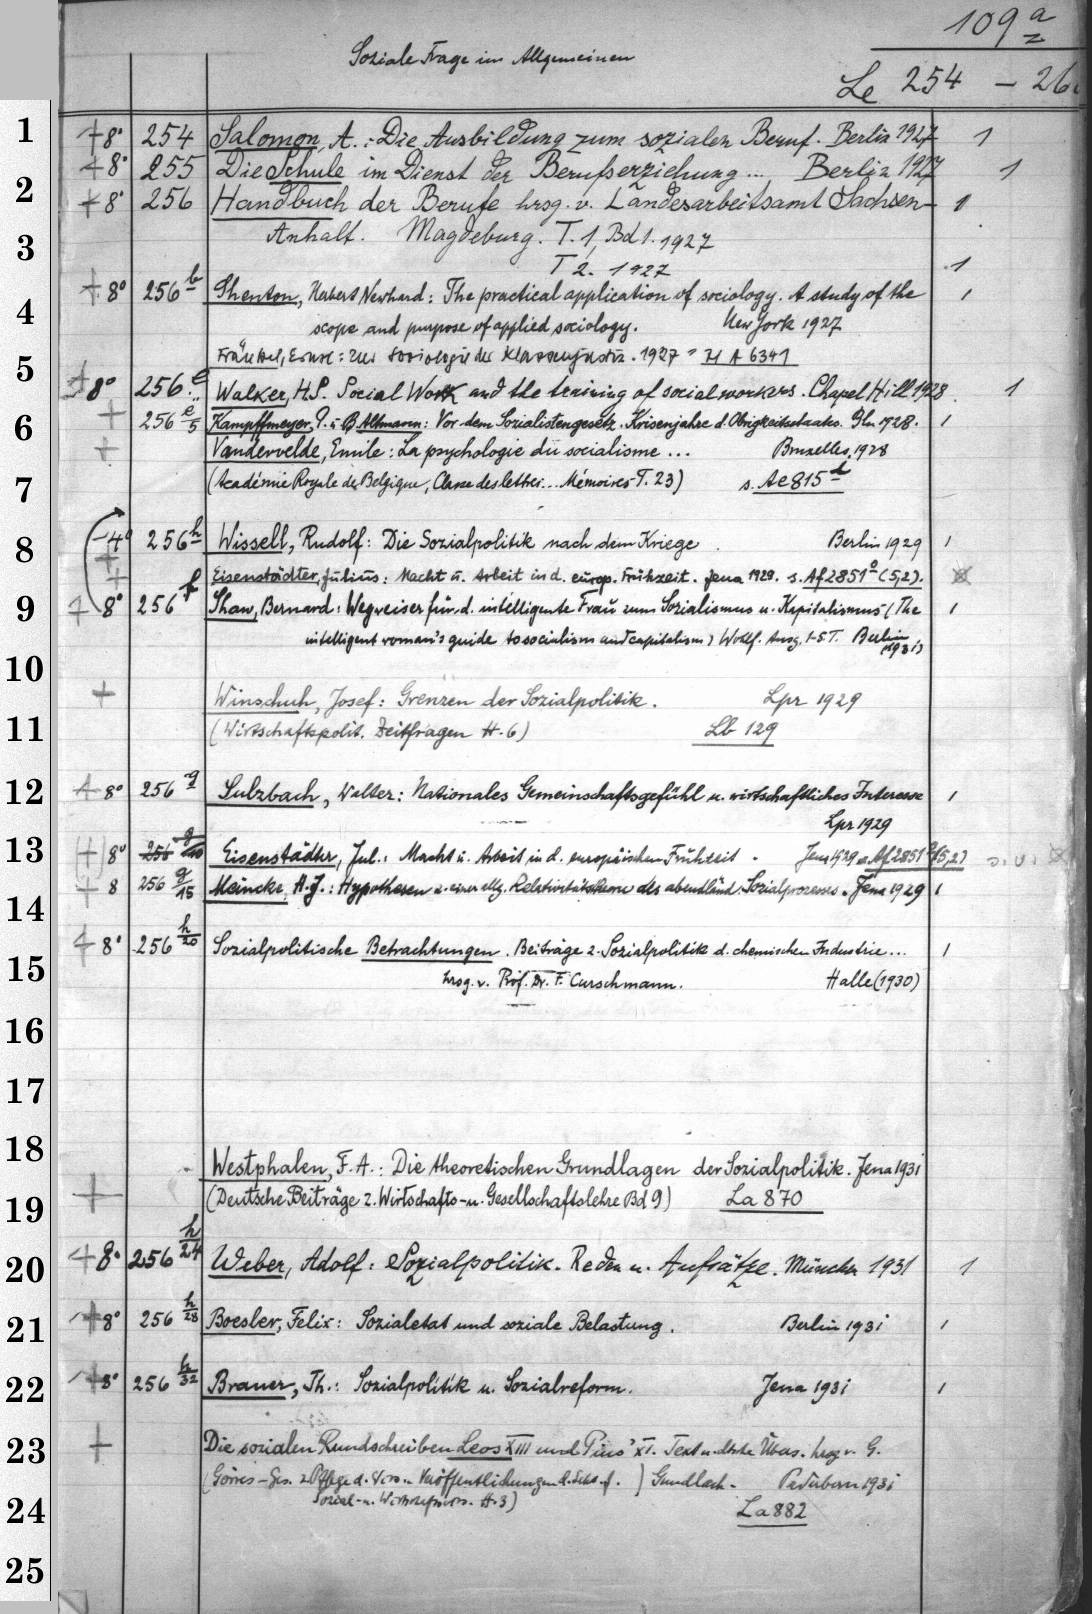 109 a/z
Soziale Frage im Allgemeinen
Le 254 – 26
1
+ 8° 254 Salomon, A.: Die Ausbildung zum sozialen Beruf. Berlin 1927 1
+ 8° 255 Die Schule im Dienst der Berufserziehung ... Berlin 1927 1
2
+ 8° 256 Handbuch der Berufe hrsg. v. Landesarbeitsamt Sachsen- 1
3
Anhalt. Magdeburg. T. 1, Bd 1. 1927
T 2. 1927 1
+ 8° 256 b Shenton, Herbert Newhard: The practical application of sociology. A study of the 1
4
scope and purpose of applied sociology. New York 1927
Fränkel, Ernst: Zur Soziologie der Klassenjustiz. 1927 = H A 6341
5
+ 8° 256 e Walker, H.P. Social Work and the training of social workers. Chapel Hill 1928. 1
+ 256 e/5 Kampffmeyer, P. u. B. Altmann: Vor dem Sozialistengesetz. Krisenjahre d. Obrigkeitsstaates. Bln 1928. 1
6
+ Vandervelde, Emile: La psychologie du socialisme ... Bruxelles, 1928
7
(Académie Royale de Belgique, Classe des lettres... Mémoires T. 23) s. Ae 815
8
4° 256 h Wissell, Rudolf: Die Sozialpolitik nach dem Kriege. Berlin 1929 1
+ Eisenstädter, Julius: Macht u. Arbeit in d. europ. Frühzeit. Jena 1929. s. Af 2851 e (5,2).
9
+ 8° 256 f Shaw, Bernard: Wegweiser für d. intelligente Frau zum Sozialismus u. Kapitalismus (The 1
intelligent woman's guide to socialism and capitalism) Wohlf. Ausg. 1-5 T. Berlin (1931)
10
+ Winschuh, Josef: Grenzen der Sozialpolitik. Lpz 1929
11
(Wirtschaftspolit. Zeitfragen H. 6) Lb 129
12
+ 8° 256 g Sulzbach, Walter: Nationales Gemeinschaftsgefühl u. wirtschaftliches Interesse 1
Lpz 1929
13
(+) 8° 256 g/10 Eisenstädter, Jul.: Macht u. Arbeit in d. europäischen Frühzeit. Jena 1929 = Af 2851 e (5,2)
+ 8 256 g/15 Meincke, H. J.: Hypothesen z. einer allg. Relativitätstheorie des abendländ. Sozialprozesses. Jena 1929 1
14
15
+ 8° 256 h/20 Sozialpolitische Betrachtungen. Beiträge z. Sozialpolitik d. chemischen Industrie... 1
hrsg. v. Prof. Dr. F. Curschmann. Halle (1930)
16
17
18
Westphalen, F. A.: Die theoretischen Grundlagen der Sozialpolitik. Jena 1931
19
+ (Deutsche Beiträge z. Wirtschafts- u. Gesellschaftslehre Bd 9) La 870
20
+ 8° 256 h/24 Weber, Adolf: Sozialpolitik. Reden u. Aufsätze. München 1931 1
21
+ 8° 256 h/28 Boesler, Felix: Sozialetat und soziale Belastung. Berlin 1931 1
22
+ 8° 256 h/32 Brauer, Th.: Sozialpolitik u. Sozialreform. Jena 1931 1
23
+ Die sozialen Rundschreiben Leos XIII und Pius' XI. Text u. dtsche Übers. hrsg v. G.
(Görres-Ges. z. Pflege d. Wiss. Veröffentlichungen d. Sekt. f. ) Gundlach. Paderborn 1931
24
Sozial- u. Wirtsch. H. 3) La 882
25